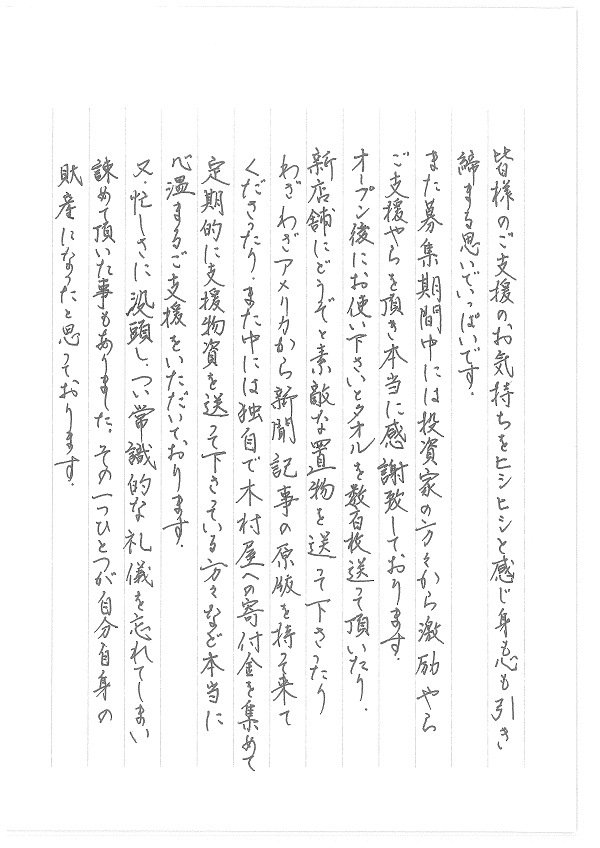 皆様のご支援のお気持ちをヒシヒシと感じ身も心も引き
締まる思いでいっぱいです．
また募集期間中には投資家の方々から激励やら
ご支援やらを頂き本当に感謝致しております．
オープン後にお使い下さいとタオルを数百枚送って頂いたり．
新店舗にどうぞと素敵な置物を送って下さったり
わざわざアメリカから新聞記事の原版を持って来て
くださったり．また中には独自で木村屋への寄付金を集めて
定期的に支援物資を送って下さっている方々など本当に
心温まるご支援をいただいております．
又．忙しさに没頭し．つい常識的な礼儀を忘れてしまい
諌めて頂いた事もありました．その一つひとつが自分自身の
財産になったと思っております．